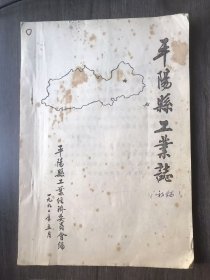 平陽縣工業誌
初稿
平陽縣工業經濟委員會編
一九九〇年五月